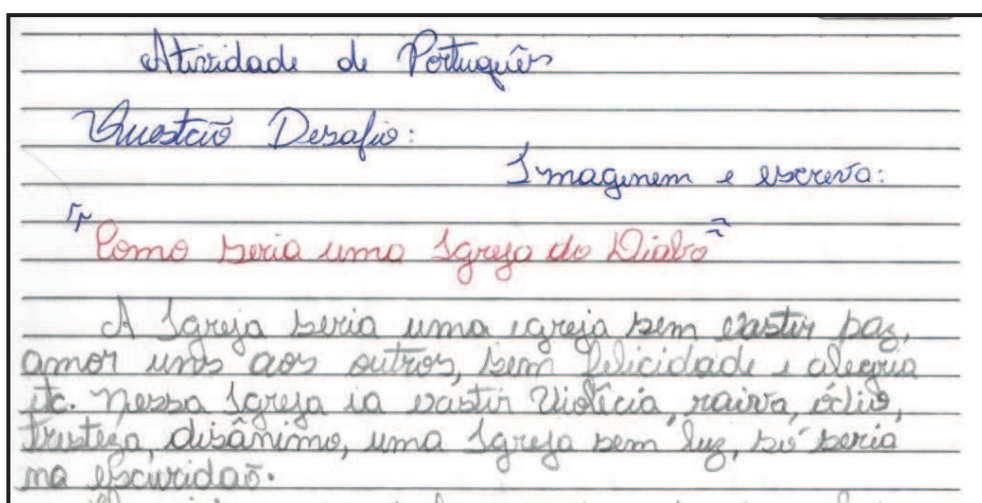 Atividade de Português
Questão Desafio:
Imaginem e escreva:
"Como seria uma Igreja do Diabo"
A Igreja seria uma igreja sem exastir paz,
amor uns aos outros, sem felicidade e alegria
etc. Nessa Igreja ia exastir Violícia, raiva, ódio,
Tristeza, disânimo, uma Igreja sem luz, só seria
na escuridaõ.